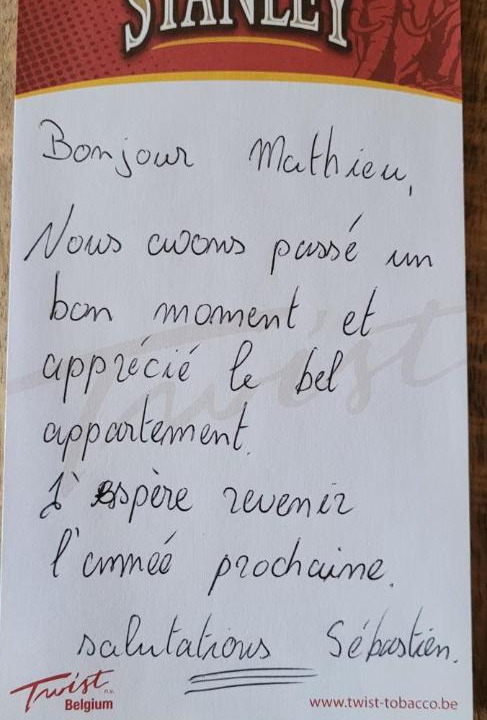 STANLEY
Bonjour Mathieu,
Nous avons passé un
bon moment et
apprécié le bel
appartement.
J'espère revenir
l'année prochaine.
salutations Sébastien.
Twist
Twist n.v.
Belgium
www.twist-tobacco.be